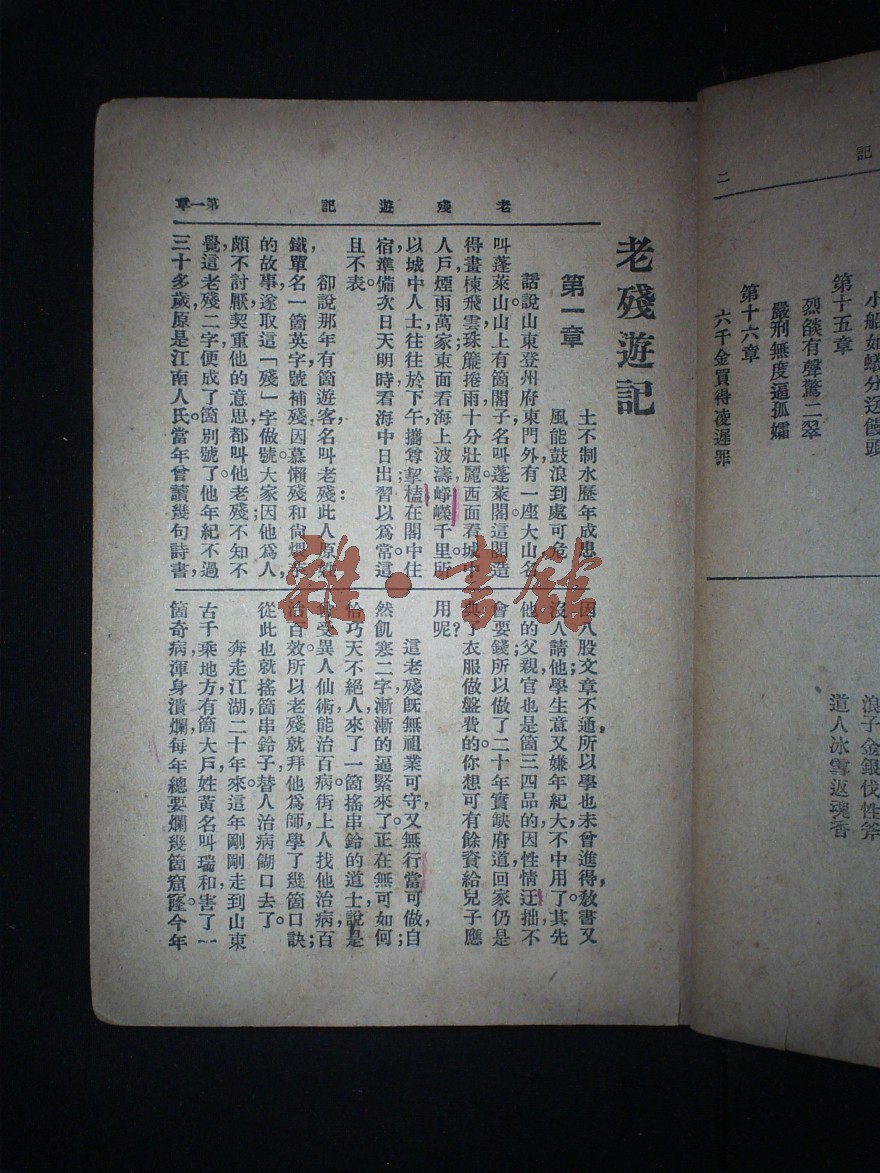 記
二
小船如蟻分送饅頭
第十五章
烈燄有聲驚二翠
嚴刑無度逼孤孀
第十六章
六千金買得凌遲罪
浪子金銀伐性斧
道人冰雪返魂香
老殘遊記
第一章
老殘遊記
第一章
土不制水歷年成患
風能鼓浪到處可危
話說山東登州府東門外有一座大山名
叫蓬萊山山上有箇閣子名叫蓬萊閣這閣造
得畫棟飛雲珠簾捲雨十分壯麗西面看城中
人戶煙雨萬家東面看海上波濤崢嶸千里所
以城中人士往往於下午攜尊挈榼在閣中住
宿準備次日天明時看海中日出習以為常這
且不表。
卻說那年有箇遊客名叫老殘此人原姓
鐵單名一箇英字號補殘因慕懶殘和尚煨芋
的故事遂取這「殘」字做號大家因他為人
頗不討厭契重他的意思都叫他老殘不知不
覺這老殘二字便成了箇別號了。他年紀不過
三十多歲原是江南人氏當年曾讀幾句詩書
因八股文章不通所以學也未曾進得教書又
沒人請他學生意又嫌年紀大不中用了。其先
他的父親官也是箇三四品的因性情迂拙不
會要錢所以做了二十年實缺府道回家仍是
典了衣服做盤費的。你想可有餘資給兒子應
用呢?
這老殘旣無祖業可守又無行當可做自
然飢寒二字漸漸的逼緊來了。正在無可如何
恰巧天不絕人來了一箇搖串鈴的道士說是
曾受異人仙術能治百病街上人找他治病百
治百效所以老殘就拜他為師學了幾箇口訣
從此也就搖箇串鈴子替人治病餬口去了。
奔走江湖二十年來。這年剛剛走到山東
古千乘地方有箇大戶姓黃名叫瑞和害了一
箇奇病渾身潰爛每年總要爛幾箇窟窿今年
雜·書館